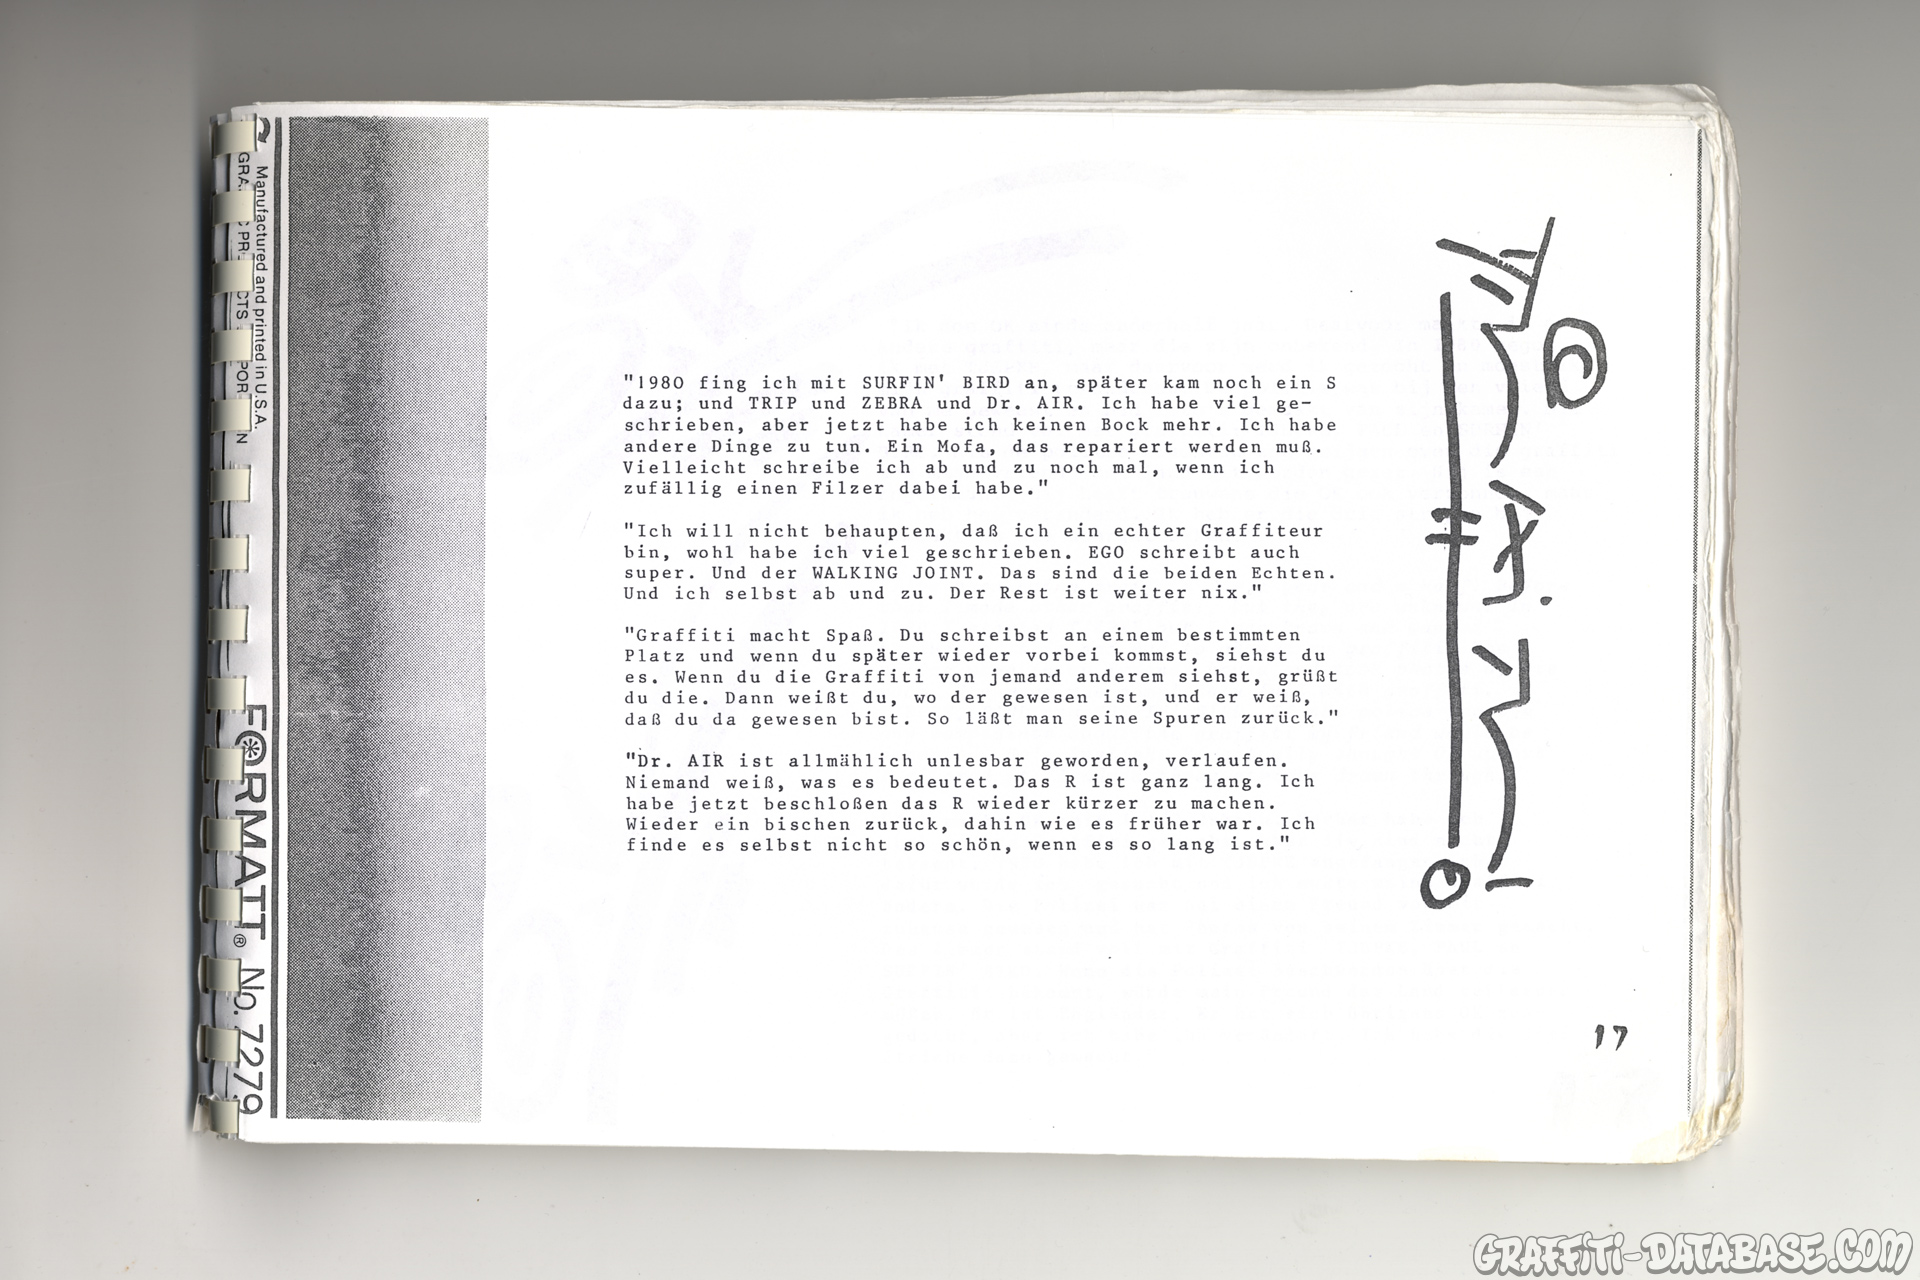 "1980 fing ich mit SURFIN' BIRD an, später kam noch ein S
dazu; und TRIP und ZEBRA und Dr. AIR. Ich habe viel ge-
schrieben, aber jetzt habe ich keinen Bock mehr. Ich habe
andere Dinge zu tun. Ein Mofa, das repariert werden muß.
Vielleicht schreibe ich ab und zu noch mal, wenn ich
zufällig einen Filzer dabei habe."
"Ich will nicht behaupten, daß ich ein echter Graffiteur
bin, wohl habe ich viel geschrieben. EGO schreibt auch
super. Und der WALKING JOINT. Das sind die beiden Echten.
Und ich selbst ab und zu. Der Rest ist weiter nix."
"Graffiti macht Spaß. Du schreibst an einem bestimmten
Platz und wenn du später wieder vorbei kommst, siehst du
es. Wenn du die Graffiti von jemand anderem siehst, grüßt
du die. Dann weißt du, wo der gewesen ist, und er weiß,
daß du da gewesen bist. So läßt man seine Spuren zurück."
"Dr. AIR ist allmählich unlesbar geworden, verlaufen.
Niemand weiß, was es bedeutet. Das R ist ganz lang. Ich
habe jetzt beschloßen das R wieder kürzer zu machen.
Wieder ein bischen zurück, dahin wie es früher war. Ich
finde es selbst nicht so schön, wenn es so lang ist."
17
Manufactured and printed in U.S.A.
FORMATT® No. 7279
GRAFFITI-DATABASE.COM